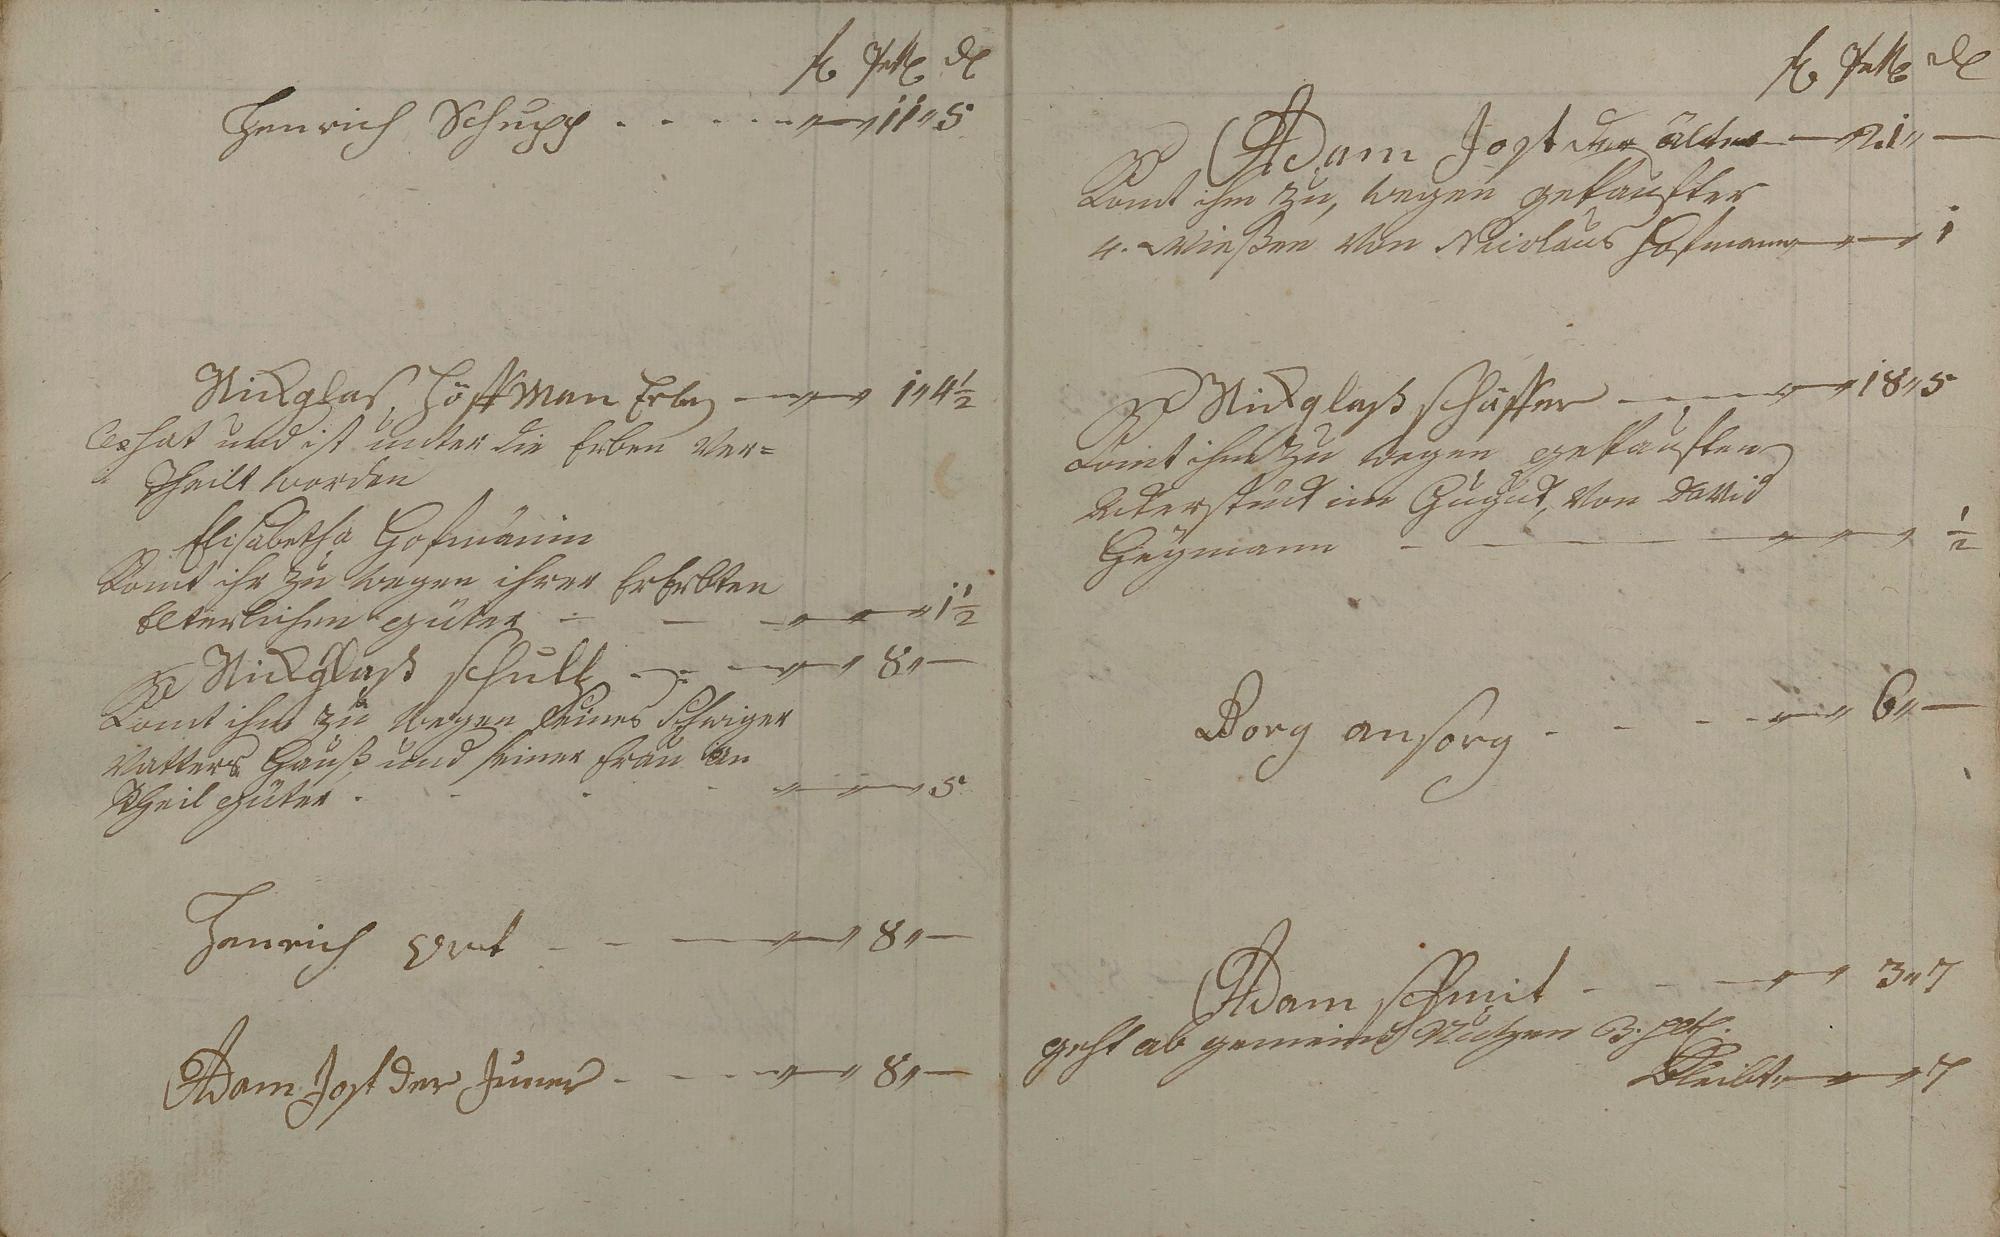 Henrich Schupp - - - - - " — " 11 " 5
Nickglas Höffman Erben — " — " 1 " 4 1/2
hat und ist unter die Erben ver=
theilt worden
Elisabetha Hofmännin
Komt ihr zu wegen ihrer Ererbten
Elterlichen güter — — — " — " — " 1 1/2
Nickglaß schultz — — " — " 8 " —
Komt ihm zu wegen seines Schwiger
Vatters Hauß und seiner frau an
theil güter . - - - " — " — " 5
Henrich - - — " — " 8 " —
Adam Jost der Juner - - - " — " 8 " —
Adam Jost der älter — " 21 " —
Komt ihm zu, wegen gekaufter
4. Wießen von Nicolaus Hofmann " — " 1
Nickglaß schäffer — — " — " 18 " 5
Komt ihm zu wegen gekauften
Ackerstück im von David
Heymann - — — — " — " — " 1/2
Borg ansorg - - - - " — " 6 " —
Adam schmit - - — " — " 3 " 7
geht ab gemeine Nutzen 3.
Bleibt " — " — " 7